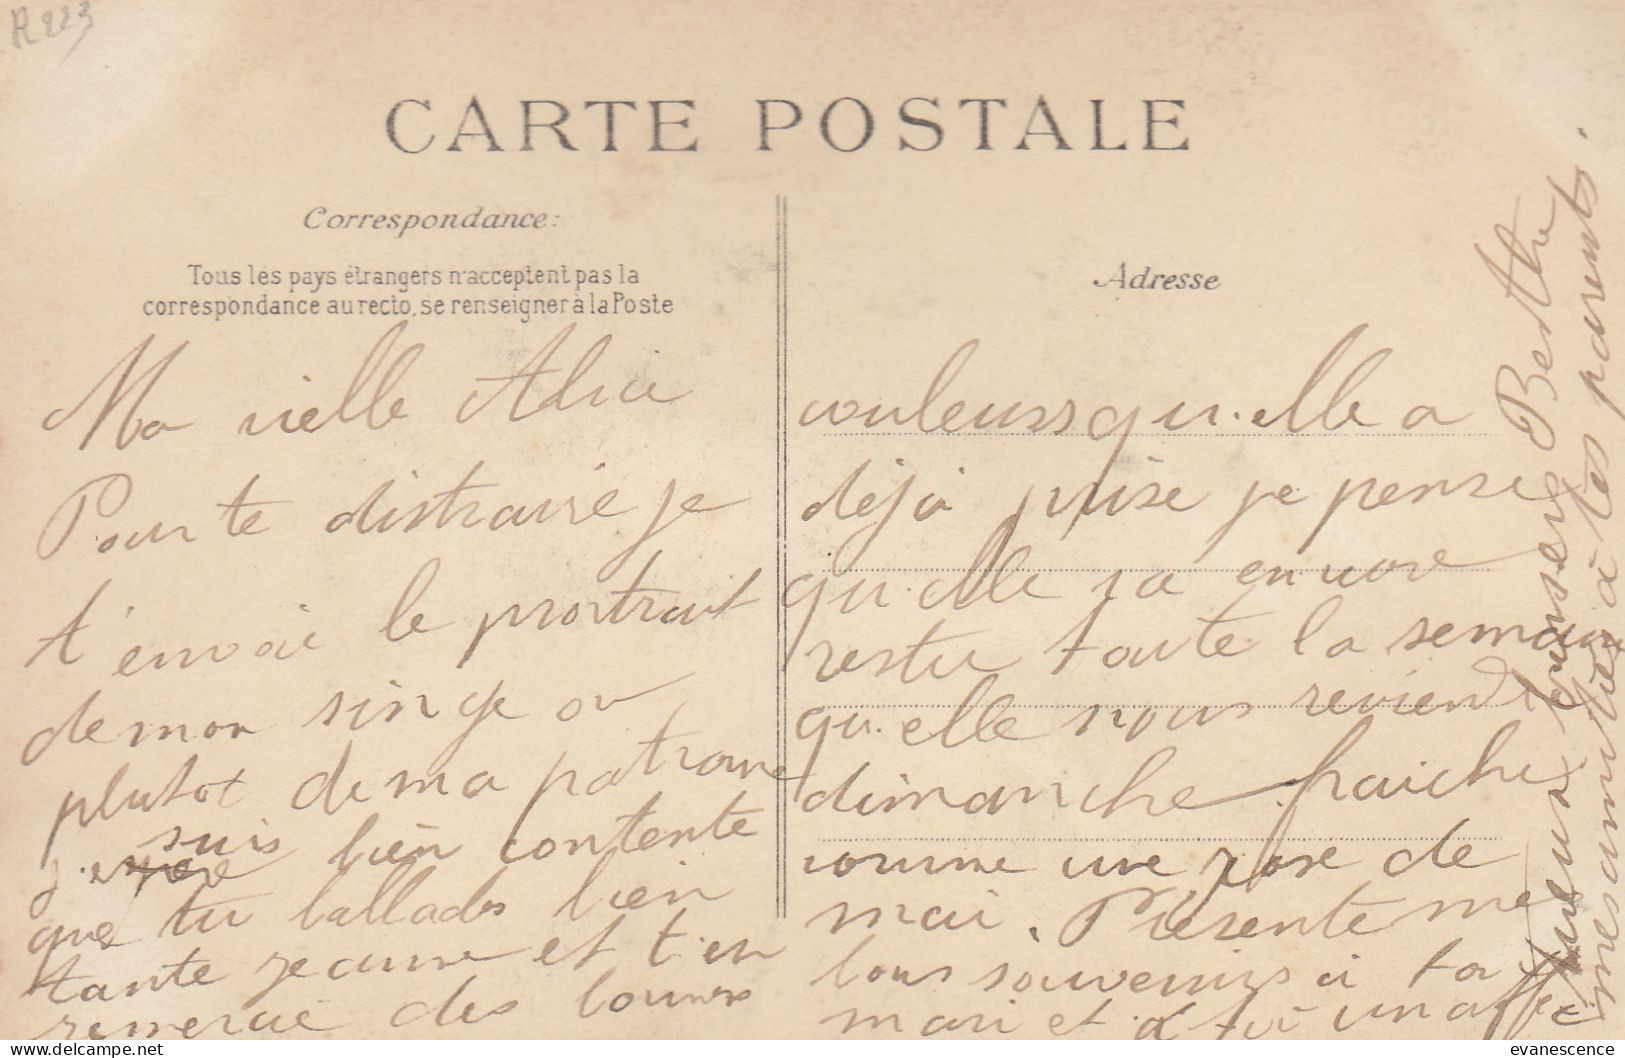 R 223
CARTE POSTALE
Correspondance:
Tous les pays étrangers n'acceptent pas la
correspondance au recto, se renseigner à la Poste
Adresse
Ma vielle Alice
Pour te distraire je
t'envoie le prortrait
de mon singe ou
plutot de ma patronne
suis
j. bien contente
que tu ballades bien
tante jeanne et t'en
remercie des bonnes
couleurs qu'elle a
déjà prise je pense
qu'elle va encore
restée toute la semaine
qu'elle nous reviendra
dimanche fraiche
comme une rose de
mai. Présente mes
bons souvenirs à ta
mari et à toi un affec
tueux baisers Berthe
mes amitiés à tes parents.
evanescence